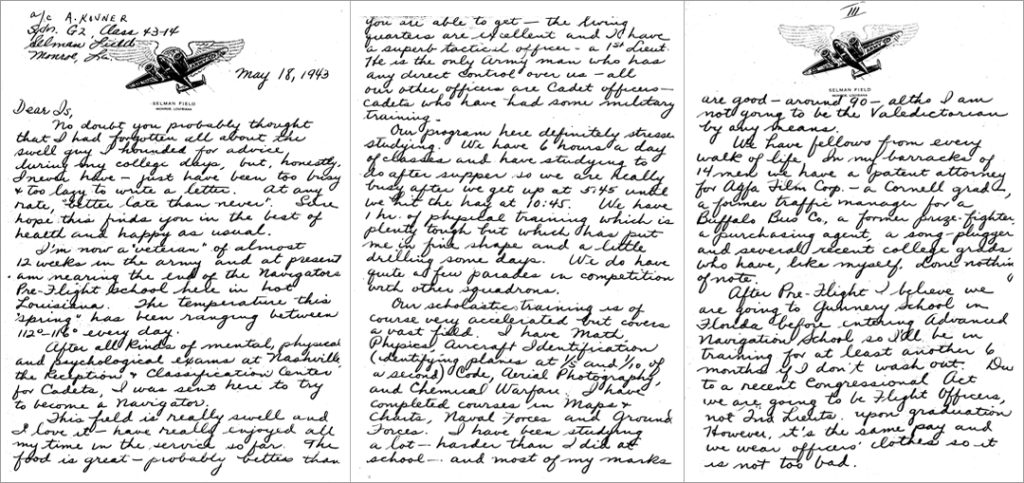 a/c A. KOVNER
Sqdn. G2, Class 43-14
Selman Field
Monroe, La.
May 18, 1943
SELMAN FIELD
MONROE, LOUISIANA
Dear Is,
No doubt you probably thought
that I had forgotten all about the
swell guy I hounded for advice
during my college days, but, honestly,
I never have – just have been too busy
& too lazy to write a letter. At any
rate, "better late than never". Sure
hope this finds you in the best of
health and happy as usual.
I'm now a "veteran" of almost
12 weeks in the army and at present
am nearing the end of the Navigators
Pre-Flight School here in hot
Louisiana. The temperature this
"spring" has been ranging between
112°-116° every day.
After all kinds of mental, physical
and psychological exams at Nashville,
the Reception & Classification Center
for Cadets, I was sent here to try
to become a Navigator.
This field is really swell and
I love it – have really enjoyed all
my time in the service so far. The
food is great – probably better than
you are able to get – the living
quarters are excellent and I have
a superb tactical officer – a 1st Lieut.
He is the only Army man who has
any direct control over us – all
our other officers are Cadet officers –
cadets who have had some military
training.
Our program here definitely stresses
studying. We have 6 hours a day
of classes and have studying to
do after supper so we are really
busy after we get up at 5:45 until
we hit the hay at 10:45. We have
1 hr. of physical training which is
plenty tough but which has put
me in fine shape and a little
drilling some days. We do have
quite a few parades in competition
with other squadrons.
Our scholastic training is of
course very accelerated but covers
a vast field. I have Math,
Physics, Aircraft Identification
(identifying planes at 1/5 and 1/10 of
a second) Code, Aerial Photography,
and Chemical Warfare. I have
completed courses in Maps &
Charts, Naval Forces and Ground
Forces. I have been studying
a lot – harder than I did at
school – and most of my marks
III
SELMAN FIELD
MONROE, LOUISIANA
are good – around 90 – altho I am
not going to be the Valedictorian
by any means.
We have fellows from every
walk of life. In my barracks of
14 men we have a patent attorney
for Agfa Film Corp. – a Cornell grad –,
a former traffic manager for a
Buffalo Bus Co, a former prize-fighter,
a purchasing agent, a song-plugger
and several recent college grads
who have, like myself, done nothin
of note.
After Pre-Flight I believe we
are going to Gunnery School in
Florida before entering Advanced
Navigation School so I'll be in
training for at least another 6
months if I don't wash out. Du
to a recent Congressional Act
we are going to be Flight Officers,
not 2nd Lieuts. upon graduation
However, it's the same pay and
we wear officers' clothes so it
is not too bad.